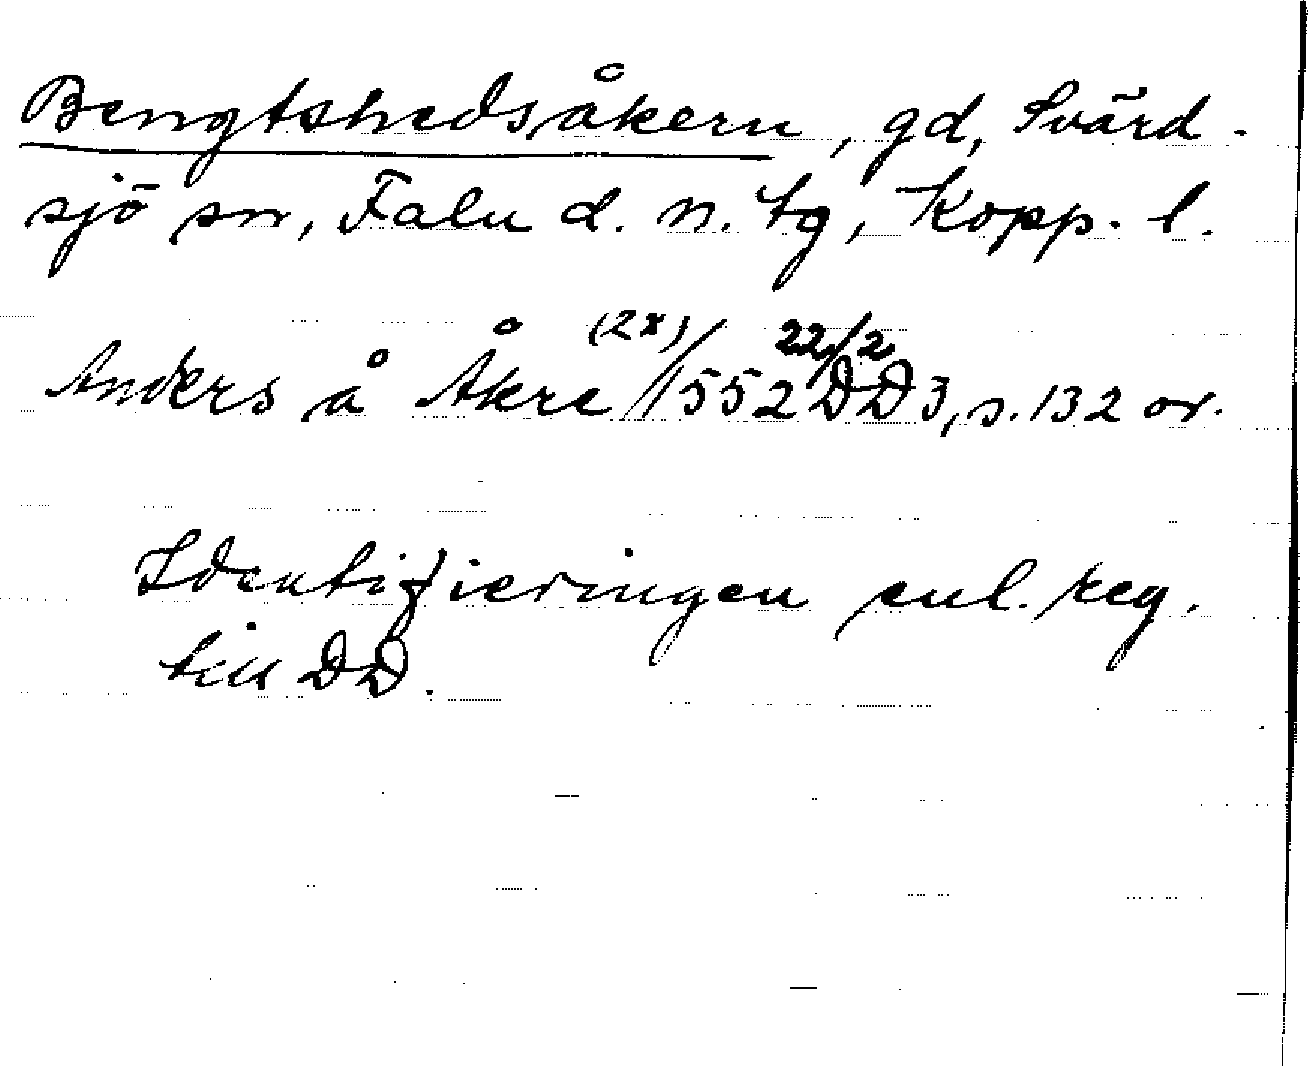 Bengtshedsåkern, gd, Svärd-
sjö sn, Falu d. n. tg, Kopp. l.
Anders å Åkre (2x)/1552 22/2 DD3, s. 132 or.
Identifieringen enl. reg.
till DD.